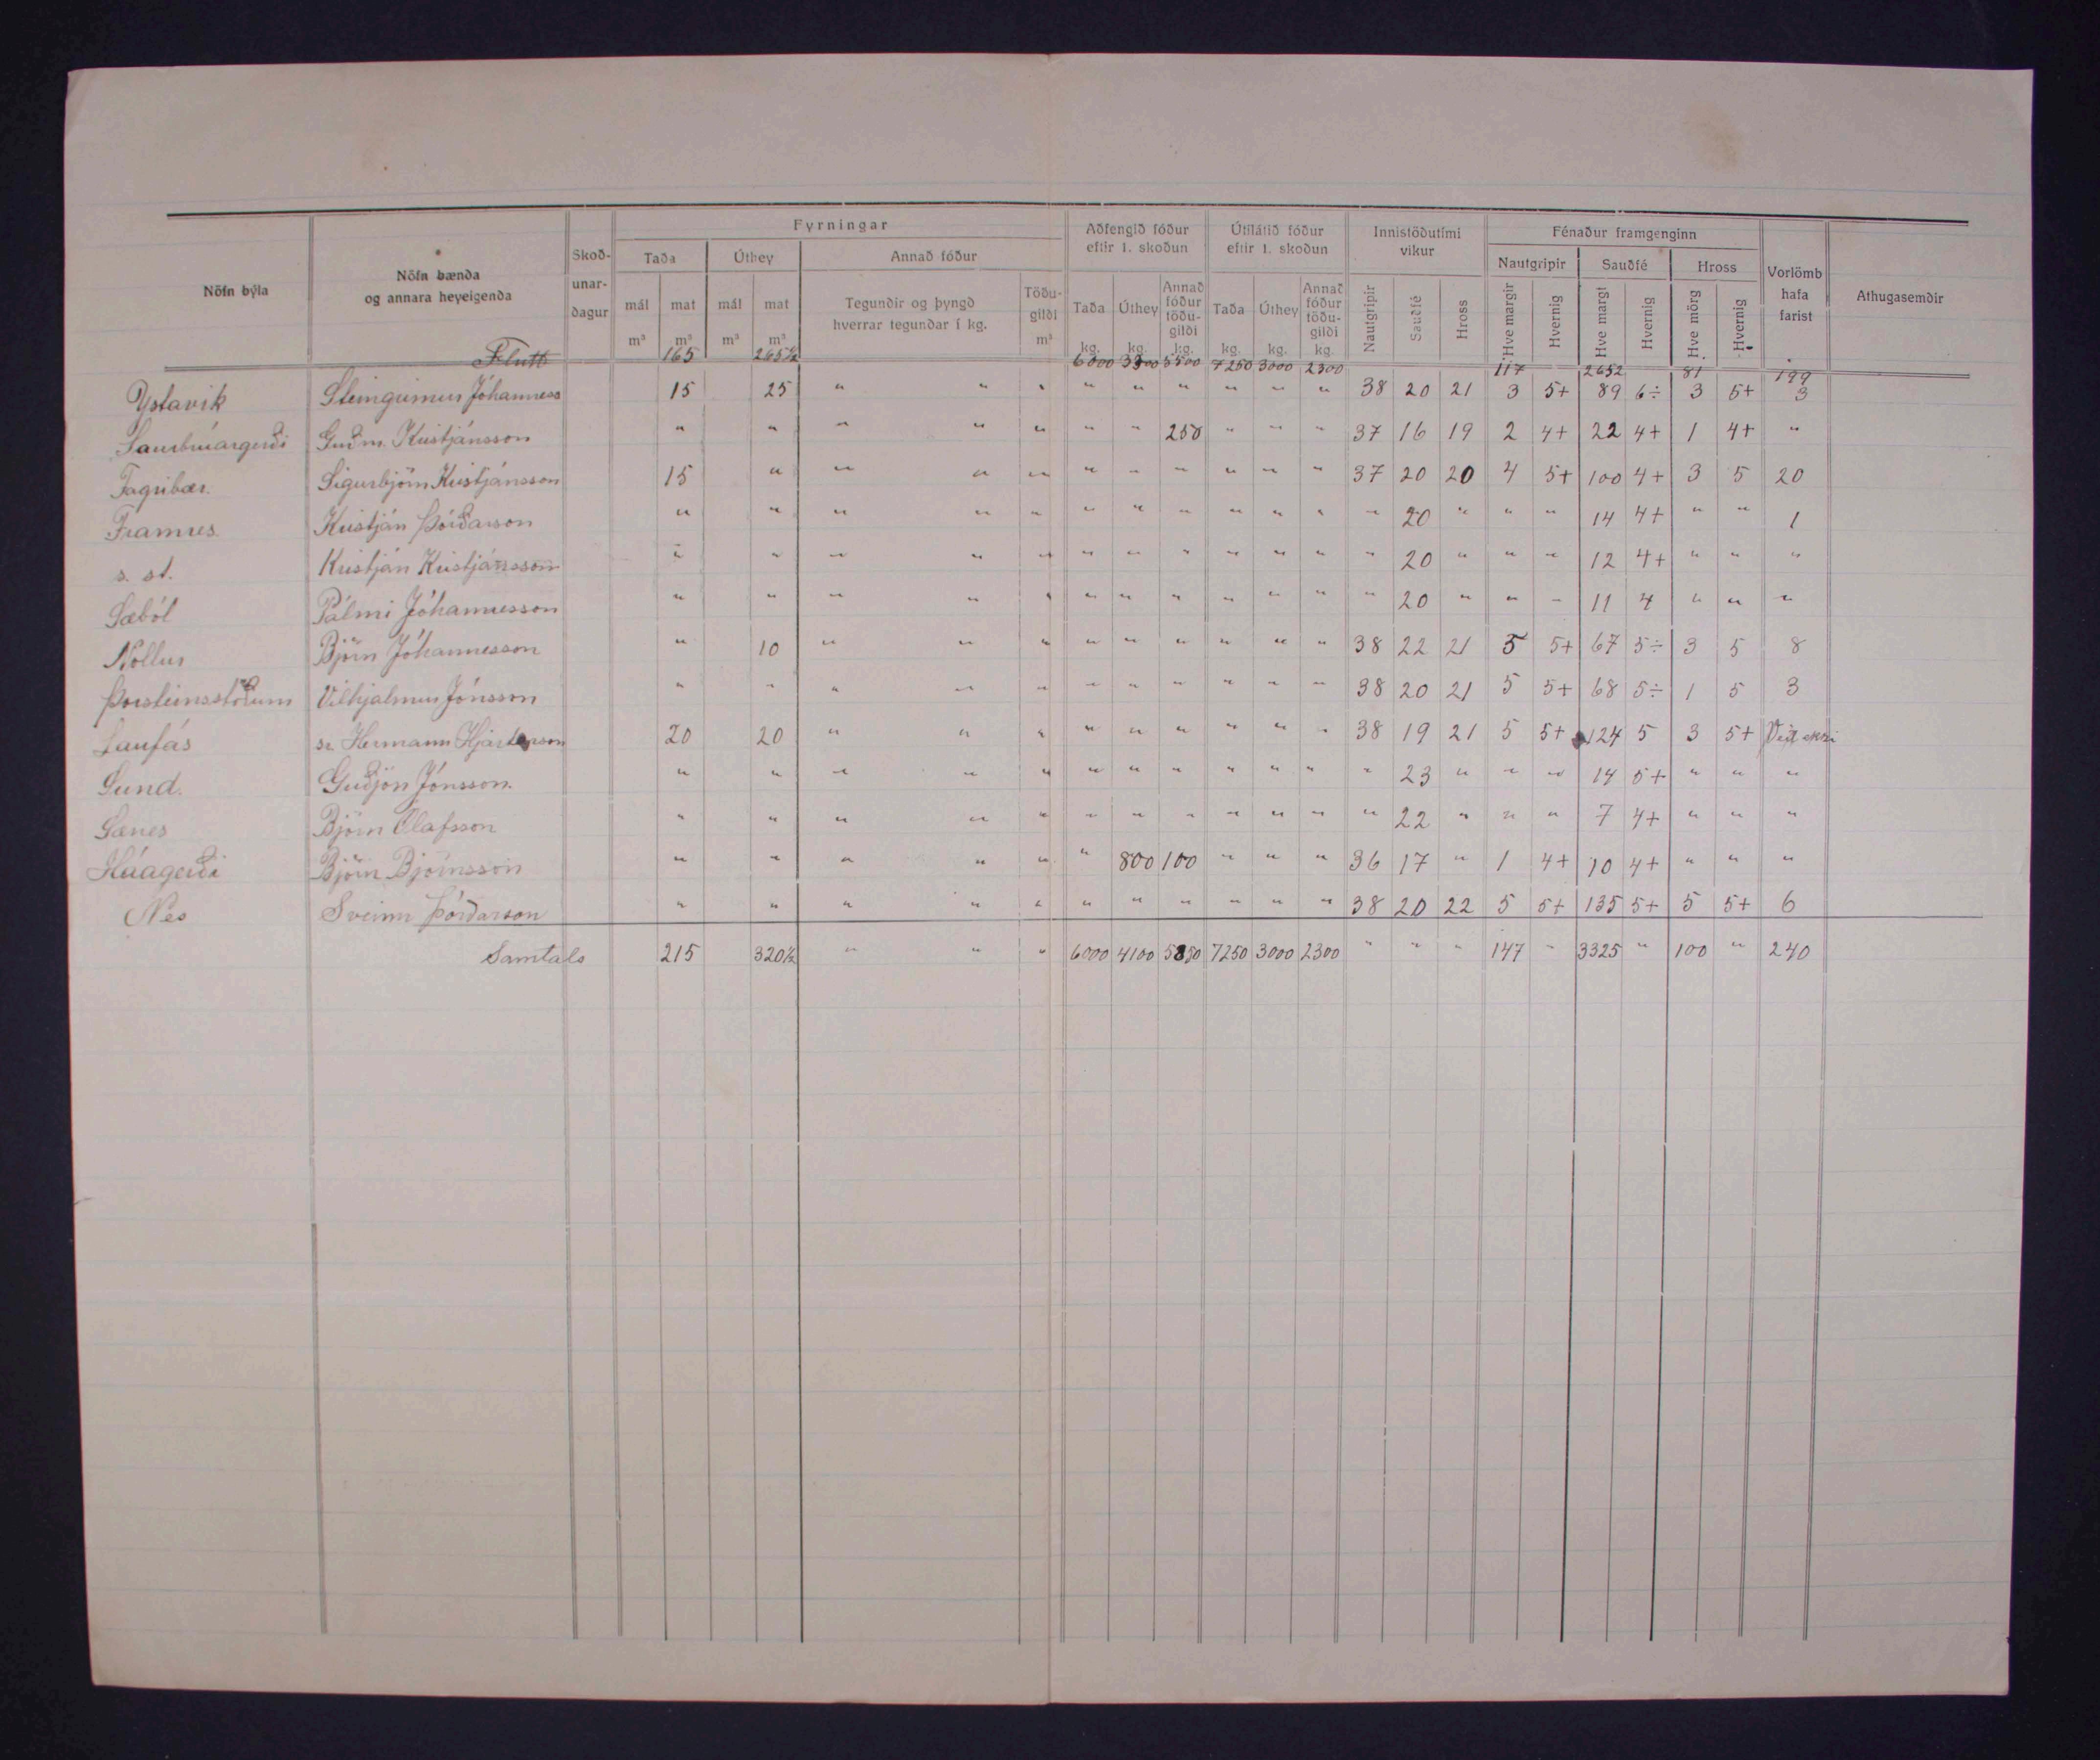 Nöfn býla | Nöfn bænda og annara heyeigenda | Skoð-unar-dagur | Fyrningar | Aðfengið fóður eftir 1. skoðun | Útilátið fóður eftir 1. skoðun | Innistöðutími vikur | Fénaður framgenginn | Vorlömb hafa farist | Athugasemdir
Taða | Úthey | Annað fóður | Nautgripir | Sauðfé | Hross
mál m³ | mat m³ | mál m³ | mat m³ | Tegundir og þyngd hverrar tegundar í kg. | Töðu-gildi m³ | Taða kg. | Úthey kg. | Annað fóður töðu-gildi kg. | Taða kg. | Úthey kg. | Annað fóður töðu-gildi kg. | Nautgripir | Sauðfé | Hross | Hve margir | Hvernig | Hve margt | Hvernig | Hve mörg | Hvernig
Flutt 165 265½ 6000 3300 5500 7250 3000 2300 117 2652 81 199
Ystavik Steingrimur Jóhanness 15 25 " " " " " " " " " 38 20 21 3 5+ 89 6÷ 3 5+ 3
Saurbrúargerði Guðm. Kristjánsson " " " " " " " 250 " " " 37 16 19 2 4+ 22 4+ 1 4+ "
Fagribær. Sigurbjörn Kristjánsson 15 " " " " " " " " " " 37 20 20 4 5+ 100 4+ 3 5 20
Framnes Kristján Þórðarson " " " " " " " " " " " " 20 " " " 14 4+ " " 1
s. st. Kristján Kristjánsson " " " " " " " " " " " " 20 " " " 12 4+ " " "
Sæból Pálmi Jóhannesson " " " " " " " " " " " " 20 " " " 11 4 " " "
Nollur Björn Jóhannesson " 10 " " " " " " " " " 38 22 21 5 5+ 67 5÷ 3 5 8
Þorsteinsstöðum Vilhjalmur Jónsson " " " " " " " " " " " 38 20 21 5 5+ 68 5÷ 1 5 3
Laufás sr. Hermann Hjartarson 20 20 " " " " " " " " " 38 19 21 5 5+ 124 5 3 5+ Veit ekki
Sund. Guðjón Jónsson. " " " " " " " " " " " " 23 " " " 14 5+ " " "
Sænes Björn Ólafsson " " " " " " " " " " " " 22 " " " 7 4+ " " "
Háagerði Björn Björnsson " " " " " " 800 100 " " " 36 17 " 1 4+ 10 4+ " " "
Nes Sveinn Þórðarson " " " " " " " " " " " 38 20 22 5 5+ 135 5+ 5 5+ 6
Samtals 215 320½ " " " 6000 4100 5850 7250 3000 2300 " " " 147 " 3325 " 100 " 240